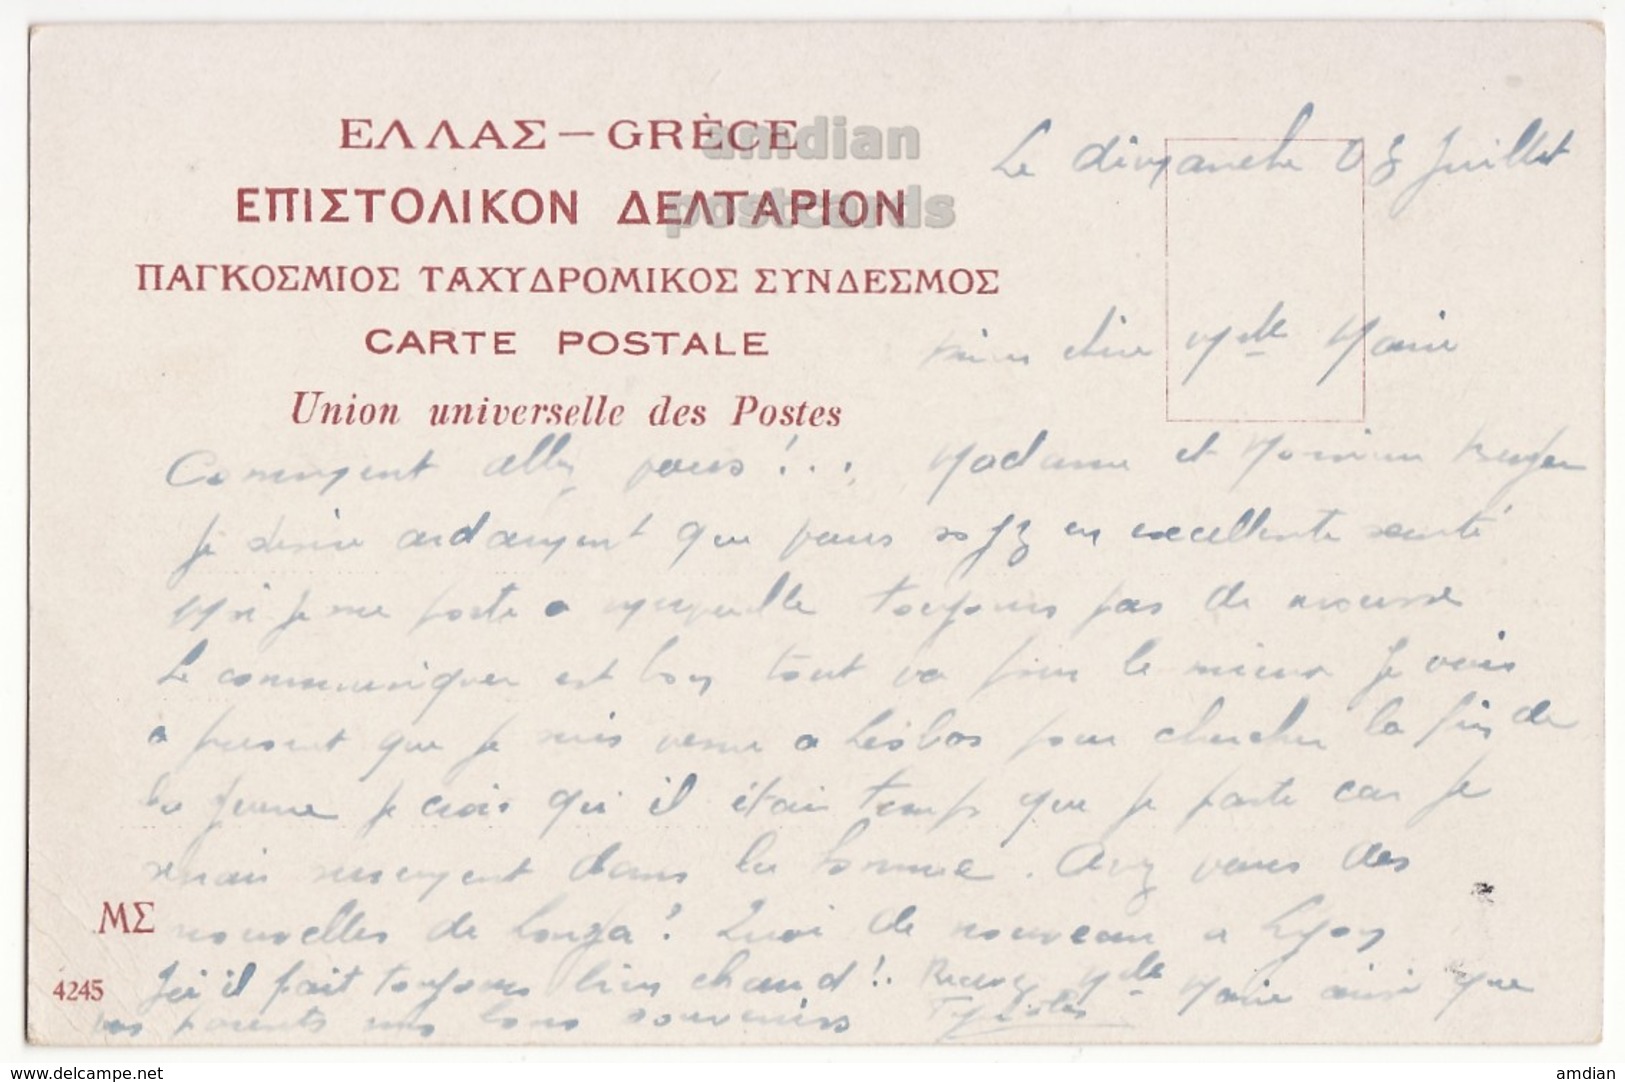 ΕΛΛΑΣ — GRÈCE
amdian
postcards
ΕΠΙΣΤΟΛΙΚΟΝ ΔΕΛΤΑΡΙΟΝ
ΠΑΓΚΟΣΜΙΟΣ ΤΑΧΥΔΡΟΜΙΚΟΣ ΣΥΝΔΕΣΜΟΣ
CARTE POSTALE
Union universelle des Postes
Le dimanche 08 Juillet
chère Mlle Marie
Comment allez vous ! . . . Madame et Monsieur
Je désire ardament que vous soyez en excellente santé
Moi je me porte a merveille toujours pas de
Le communiquer est bon tout va pour le mieux Je vois
a présent que je suis venu a Lesbos pour chercher la fin de
la guerre je crois qu'il était temps que je parte car je
serais dans la Somme. Avez vous des
nouvelles de ? Quoi de nouveau a Lyon
Ici il fait toujours bien chaud !. Recevez Mlle Marie ainsi que
vos parents mes bons souvenirs
ΜΣ
4245
delcampe.net
amdian